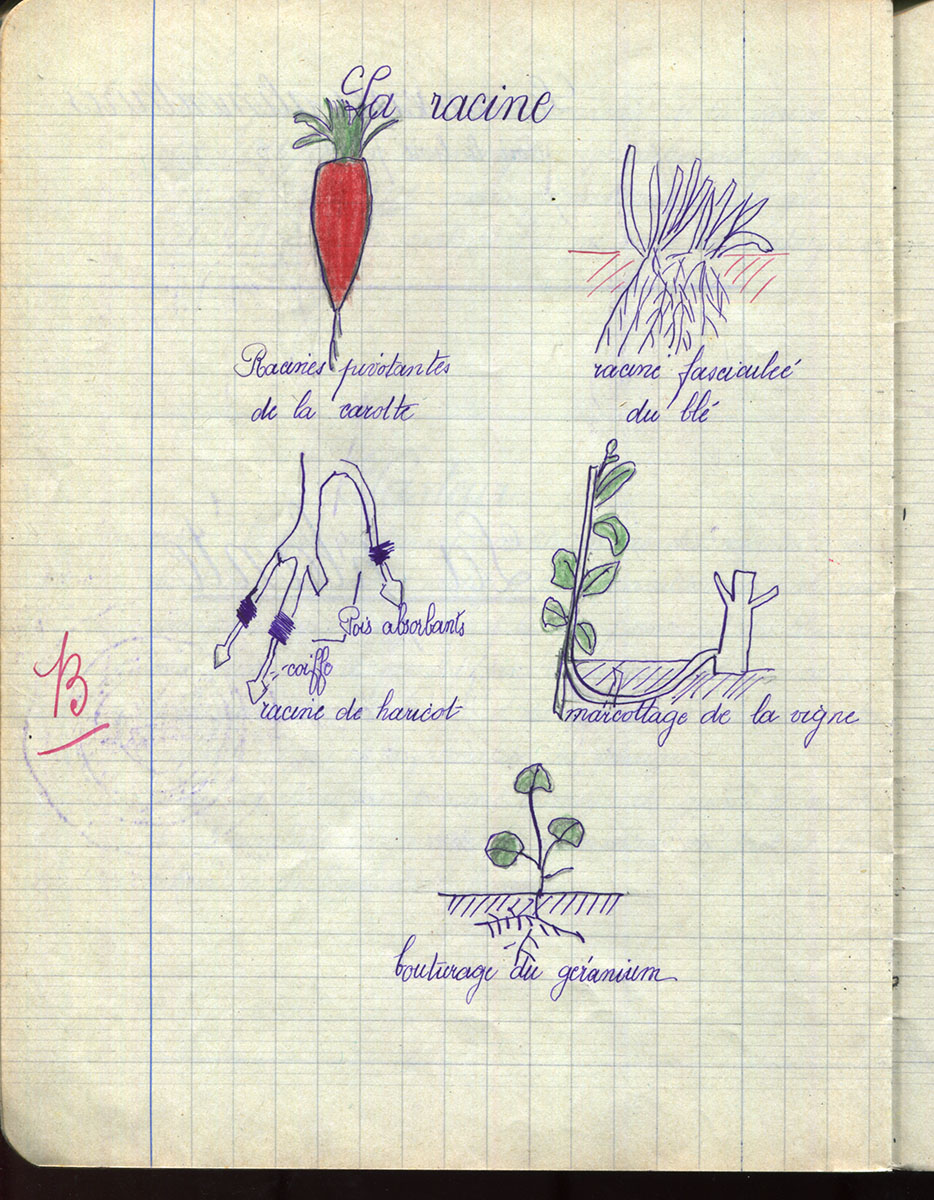 La racine
Racines pivotantes
de la carotte
racine fasciculeé
du blé
Pois absorbants
coiffe
racine de haricot
marcottage de la vigne
B
bouturage du géranium